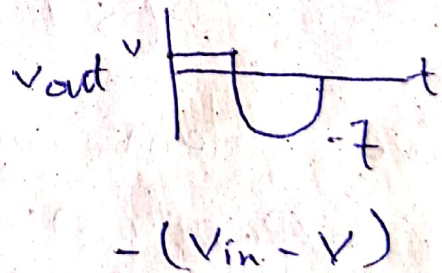 Vout V t
-7
-(Vin - V)